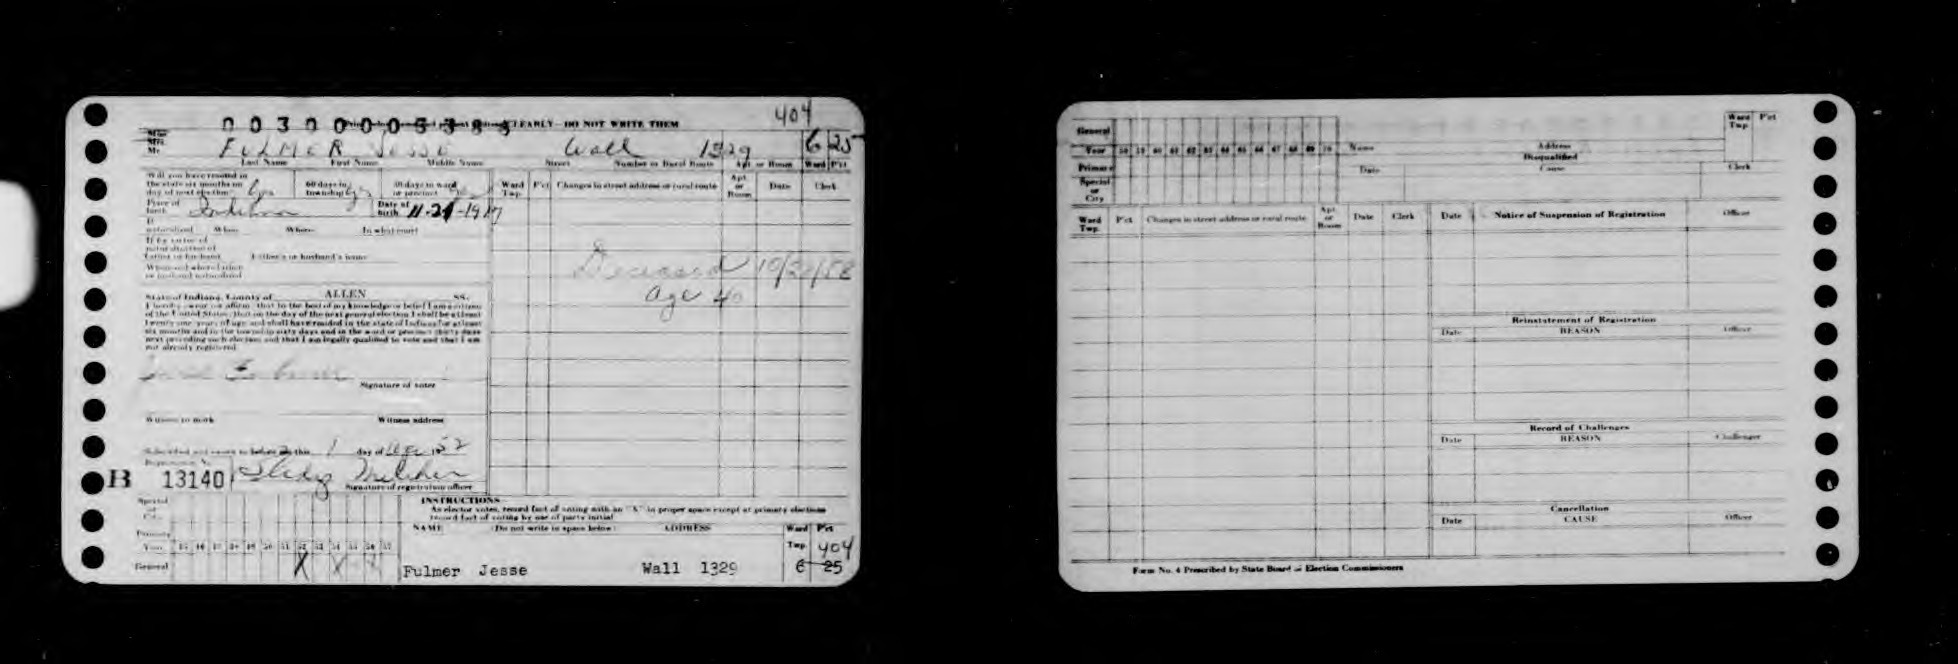 404
00300005385
CLEARLY - DO NOT WRITE THEM
Miss
Mrs.
Mr.
FULMER JESSE Wall 1329 6 25
Last Name First Name Middle Name Street Number or Rural Route Apt. or Room Ward P'ct
Will you have resided in
the state six months on
day of next election? yes 60 days in township yes 30 days in ward or precinct yes
Ward Twp. P'ct Changes in street address or rural route Apt. or Room Date Clerk
Place of birth Indiana Date of birth 11-21-1917
If naturalized When Where In what court
If by virtue of
naturalization of
father or husband Father's or husband's name
When and where father
or husband naturalized
Deceased 10/21/58
Age 40
State of Indiana, County of ALLEN SS.
I hereby swear or affirm that to the best of my knowledge or belief I am a citizen
of the United States, that on the day of the next general election I shall be at least
twenty-one years of age and shall have resided in the state of Indiana for at least
six months and in the township sixty days and in the ward or precinct thirty days
next preceding such election and that I am legally qualified to vote and that I am
not already registered.
Signature of voter
Witness to mark Witness address
Subscribed and sworn to before me this 1 day of 52
Registration No.
B 13140
Signature of registration officer
Special or City
INSTRUCTIONS
As elector votes, record fact of voting with an "X" in proper space except at primary elections
record fact of voting by use of party initial
Primary
NAME (Do not write in space below) ADDRESS Ward Twp. P'ct
Year 45 46 47 48 49 50 51 52 53 54 55 56 57
404
General X X X
Fulmer Jesse Wall 1329 6 25
General
Ward Twp. P'ct
Year 58 59 60 61 62 63 64 65 66 67 68 69 70 Name Address
Disqualified
Primary Date Cause Clerk
Special or City
Ward Twp. P'ct Changes in street address or rural route Apt. or Room Date Clerk Date Notice of Suspension of Registration Officer
Reinstatement of Registration
Date REASON Officer
Record of Challenges
Date REASON Challenger
Cancellation
Date CAUSE Officer
Form No. 4 Prescribed by State Board of Election Commissioners